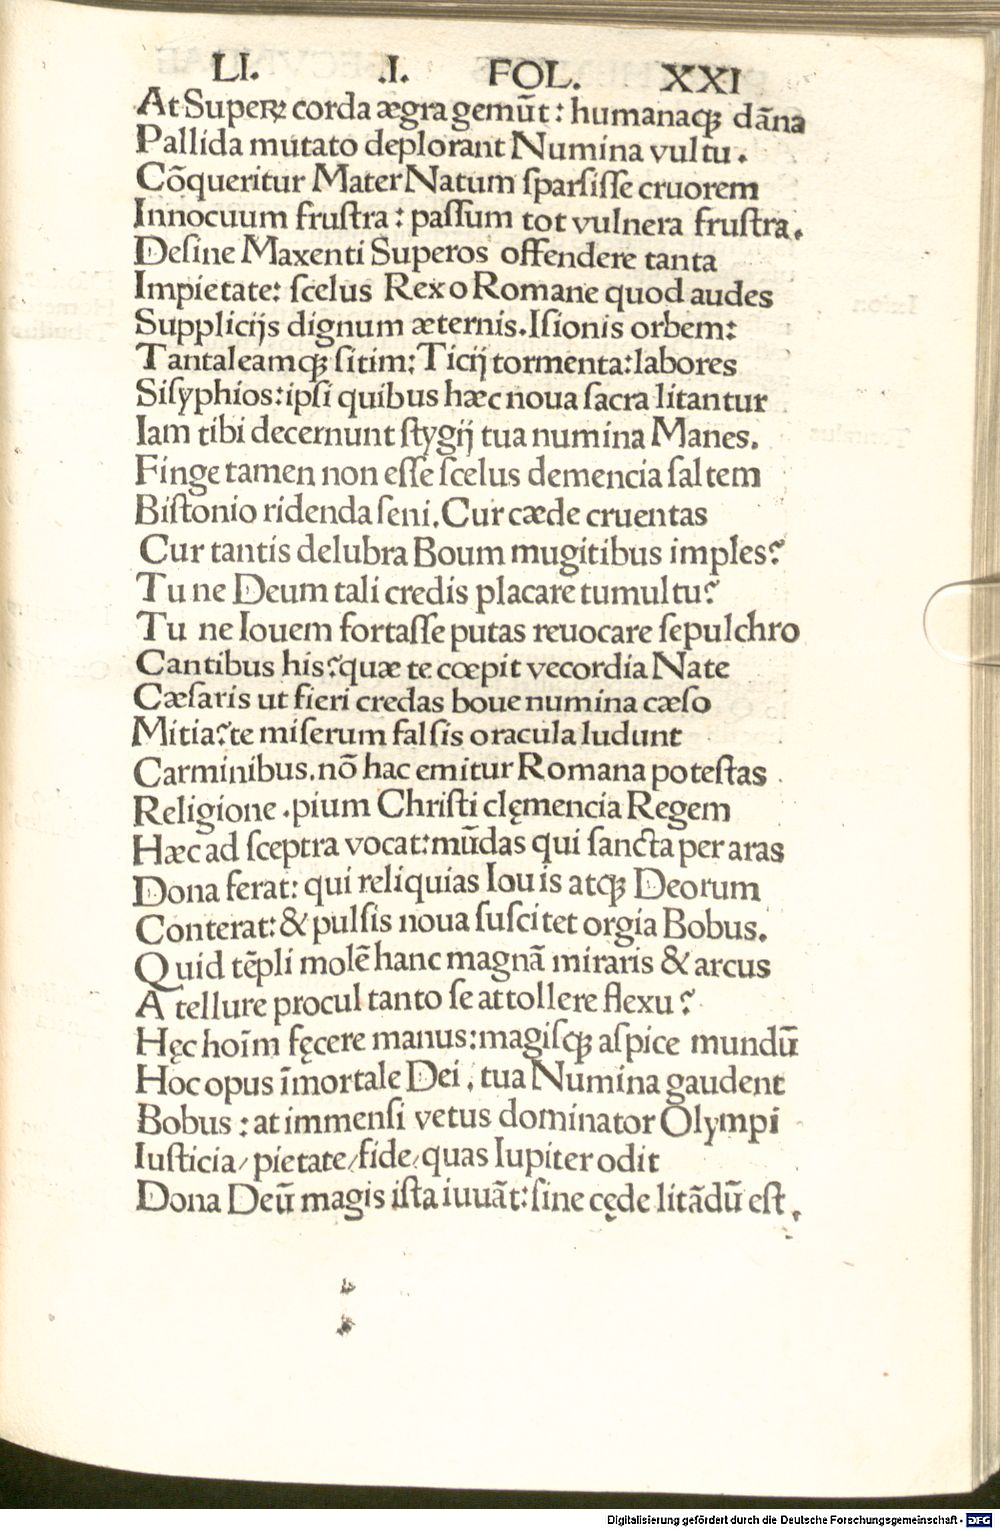 LI. .I. FOL. XXI
At Superꝝ corda ægra gemūt: humanaqꝫ dāna
Pallida mutato deplorant Numina vultu.
Cōqueritur Mater Natum ſparſiſſe cruorem
Innocuum fruſtra: paſſum tot vulnera fruſtra.
Deſine Maxenti Superos offendere tanta
Impietate: ſcelus Rex o Romane quod audes
Supplicijs dignum æternis. Iſionis orbem:
Tantaleamqꝫ ſitim: Ticij tormenta: labores
Siſyphios: ipſi quibus hæc noua ſacra litantur
Iam tibi decernunt ſtygij tua numina Manes.
Finge tamen non eſſe ſcelus demencia ſaltem
Biſtonio ridenda ſeni. Cur cæde cruentas
Cur tantis delubra Boum mugitibus imples?
Tu ne Deum tali credis placare tumultu?
Tu ne Iouem fortaſſe putas reuocare ſepulchro
Cantibus his? quæ te cœpit vecordia Nate
Cæſaris ut fieri credas boue numina cæſo
Mitia? te miſerum falſis oracula ludunt
Carminibus. nō hac emitur Romana poteſtas
Religione. pium Chriſti clęmencia Regem
Hæc ad ſceptra vocat: mūdas qui ſancta per aras
Dona ferat: qui reliquias Iouis atqꝫ Deorum
Conterat: & pulſis noua ſuſcitet orgia Bobus.
Quid tēpli molē hanc magnā miraris & arcus
A tellure procul tanto ſe attollere flexu?
Hęc hoīm fęcere manus: magiſqꝫ aſpice mundū
Hoc opus īmortale Dei. tua Numina gaudent
Bobus: at immenſi vetus dominator Olympi
Iuſticia/ pietate/ fide/ quas Iupiter odit
Dona Deū magis iſta iuuāt: ſine cęde litādū eſt.
Digitalisierung gefördert durch die Deutsche Forschungsgemeinschaft - DFG